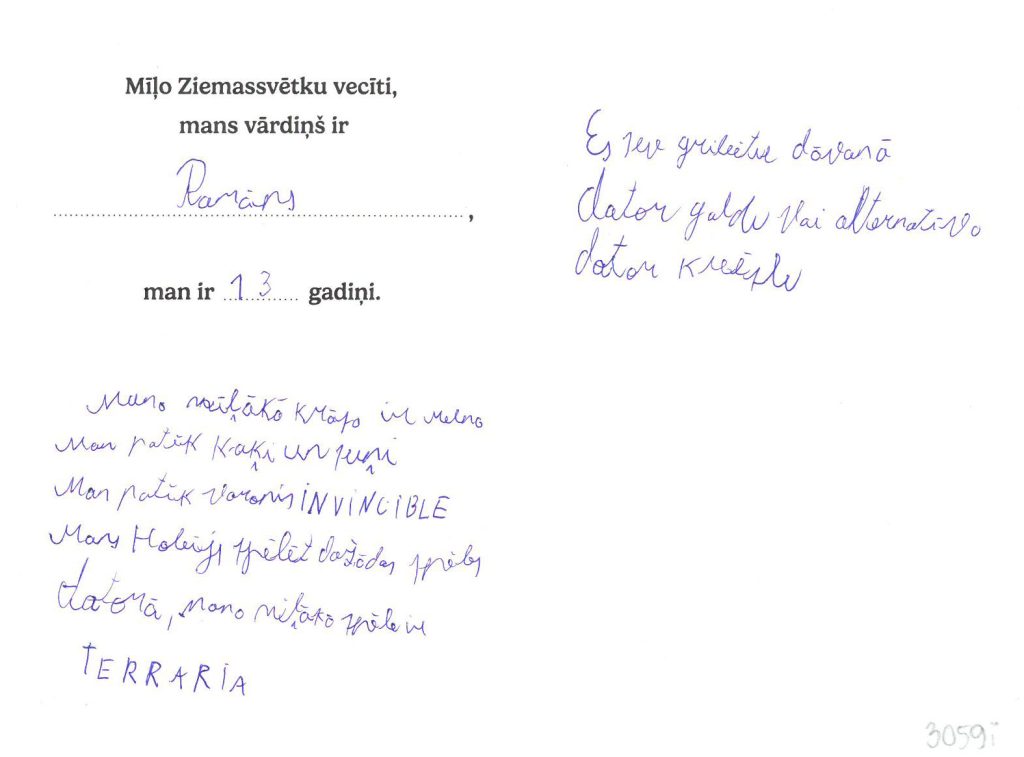 Mīļo Ziemassvētku vecīti,
mans vārdiņš ir
Ramāns,
man ir 13 gadiņi.
Mano mīļākō krāso ir melno
Man patīk kaķi un suņi
Man patīk varonis INVINCIBLE
Mans Hobijs spēlēt dažādas spēles
datorā, mano mīļākō spēle ir
TERRARIA
Es sev gribētu dāvanā
dator galdu vai alternatīvo
dator krēslu
3059